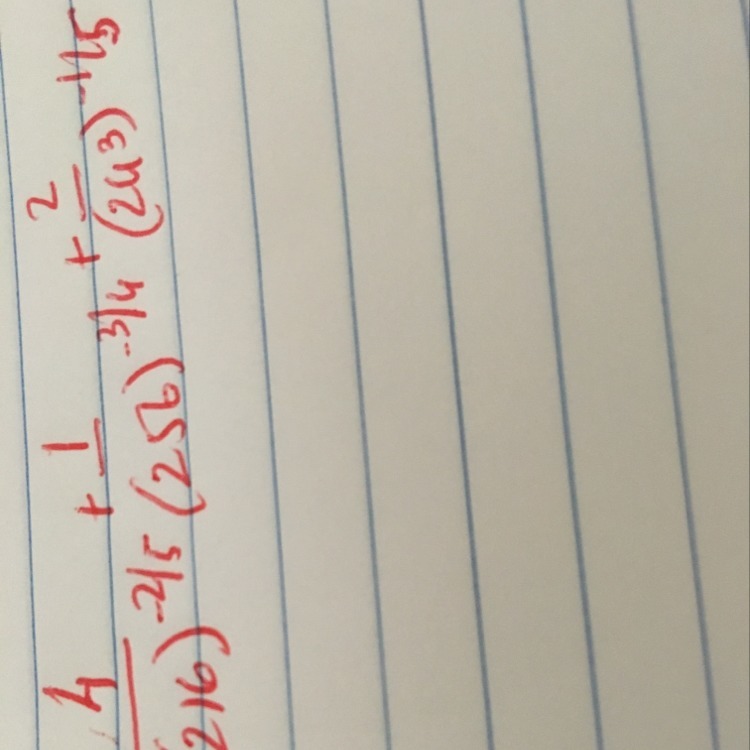 4 + 1 + 2
216)^-2/5 (256)^-3/4 (243)^-1/5